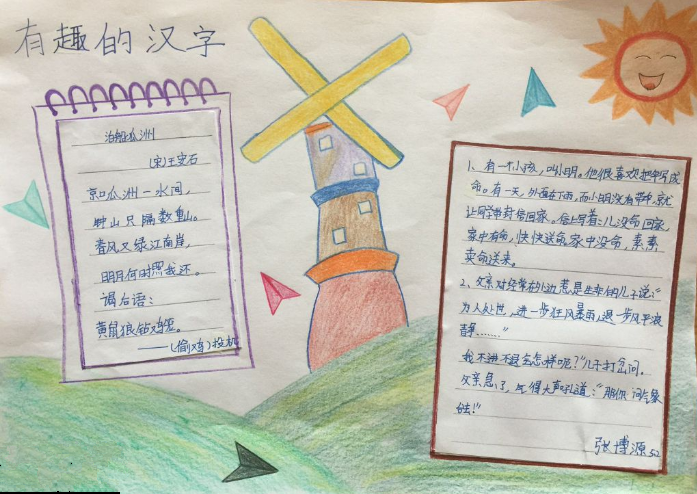 有趣的汉字
泊船瓜洲
(宋)王安石
京口瓜洲一水间,
钟山只隔数重山。
春风又绿江南岸,
明月何时照我还。
谒后语:
黄鼠狼钻鸡笼。
——(偷鸡)投机
1、有一个小孩,叫小明。他很喜欢把伞写成
命。有一天,外面在下雨,而小明没有带伞,就
让同学带封信回家。信上写着:儿没命回家,
家中有命,快快送命,家中没命,
卖命送来。
2、父亲对经常在外边惹是生非的儿子说:“
为人处世,进一步狂风暴雨,退一步风平浪
静………”
我不进不退会怎样呢?”儿子打岔问。
父亲急了,气得大声吼道:“那你问气象
台!”
张博源 52